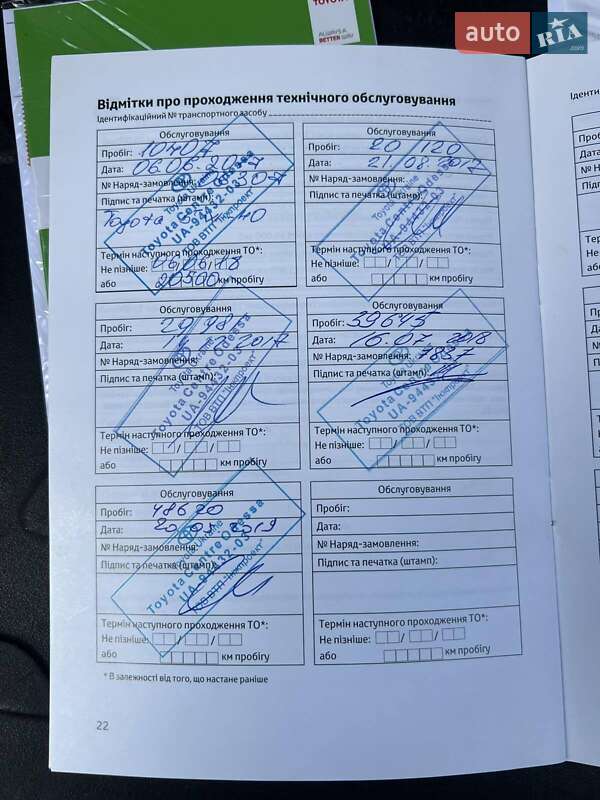 TOYOTA
ALWAYS A
BETTER WAY
auto RIA .com
Відмітки про проходження технічного обслуговування
Ідентифікаційний № транспортного засобу
Обслуговування
Пробіг: 10407
Дата: 06.06.
№ Наряд-замовлення:
Підпис та печатка (штамп):
Toyota
Toyota Centre Odessa
UA-94432-03
ТОВ ВТП "Інжпроект"
Термін наступного проходження ТО*:
Не пізніше: 06.06.18
або 20500 км пробігу
Обслуговування
Пробіг: 20 120
Дата: 21.08.2017
№ Наряд-замовлення:
Підпис та печатка (штамп):
Toyota Ukraine
Toyota Centre Odessa
UA-94432-03
ТОВ ВТП "Інжпроект"
Термін наступного проходження ТО*:
Не пізніше: / /
або км пробігу
Обслуговування
Пробіг:
Дата:
№ Наряд-замовлення:
Підпис та печатка (штамп):
Toyota Ukraine
Toyota Centre Odessa
UA-94432-03
ТОВ ВТП "Інжпроект"
Термін наступного проходження ТО*:
Не пізніше: / /
або км пробігу
Обслуговування
Пробіг: 39645
Дата: 16.07 2018
№ Наряд-замовлення: 7837
Підпис та печатка (штамп):
Toyota Ukraine
Toyota Centre Odessa
UA-94432-03
ТОВ ВТП "Інжпроект"
Термін наступного проходження ТО*:
Не пізніше: / /
або км пробігу
Обслуговування
Пробіг: 48670
Дата: 2019
№ Наряд-замовлення:
Підпис та печатка (штамп):
Toyota Ukraine
Toyota Centre Odessa
UA-94432-03
ТОВ ВТП "Інжпроект"
Термін наступного проходження ТО*:
Не пізніше: / /
або км пробігу
Обслуговування
Пробіг:
Дата:
№ Наряд-замовлення:
Підпис та печатка (штамп):
Термін наступного проходження ТО*:
Не пізніше: / /
або км пробігу
* В залежності від того, що настане раніше
22